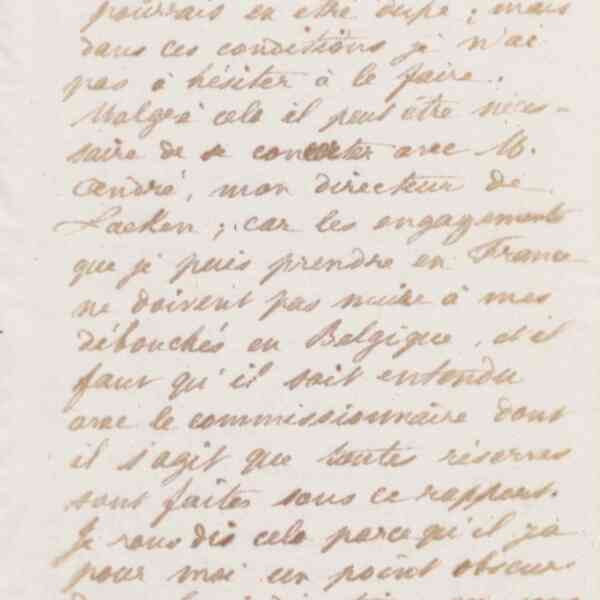 pourrais en être dupe ; mais
dans ces conditions je n'ai
pas à hésiter à le faire.
Malgré cela il peut être néces-
saire de se concerter avec M.
André, mon directeur de
Laeken ; car les engagements
que je puis prendre en France
ne doivent pas nuire à mes
débouchés en Belgique, et il
faut qu'il soit entendu
avec le commissionnaire dont
il s'agit que toutes réserves
sont faites sous ce rapport.
Je vous dis cela parce qu'il y a
pour moi un point obscur